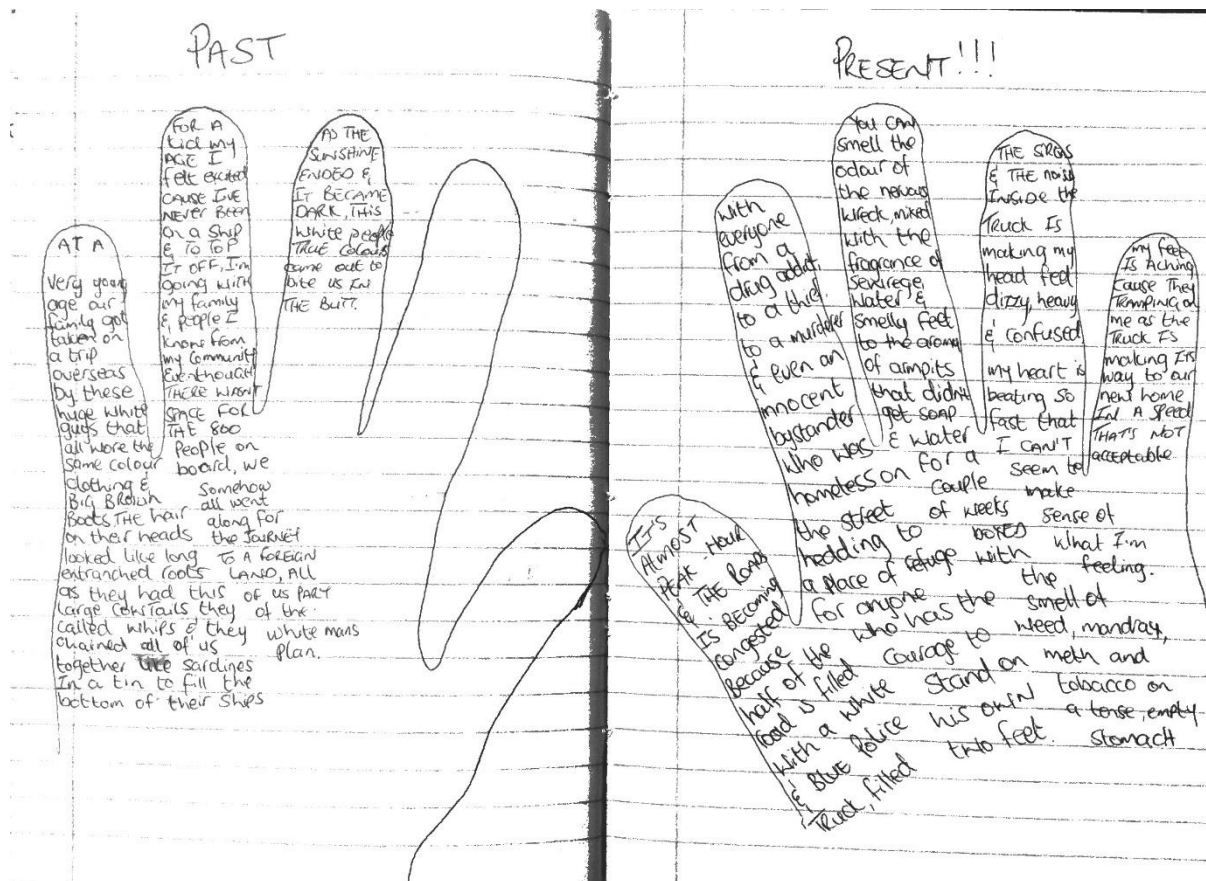 PAST
AT A
Very young
age our
family got
taken on
a trip
overseas
by these
huge white
guys that
all wore the
same colour
clothing &
BIG BROWN
Boots, THE hair
on their heads
looked like long
entranched roots
as they had this
large cowstails they
called whips & they
chained all of us
together like sardines
In a tin to fill the
bottom of their ships
FOR A
kid my
AGE I
felt excited
CAUSE I'VE
NEVER BEEN
On a Ship
& TO TOP
IT OFF, I'm
going with
my family
& people I
know from
my community
Eventhough
THERE WASN'T
SPACE FOR
THE 800
People on
board, we
Somehow
all went
along for
the JOURNEY
TO A FOREIGN
LAND, ALL
OF US PART
of the
white mans
plan.
AS THE
SUNSHINE
ENDED &
IT BECAME
DARK, THIS
white people
TRUE COLOURS
came out to
bite us IN
THE BUTT.
PRESENT!!!
IT'S
ALMOST
PEAK-HOUR
& THE ROADS
IS BECOMING
congested
Because
half of the
road is filled
with a white
& BLUE Police
Truck, filled
with
everyone
from a
drug addict,
to a thief.
to a murderer
& even an
innocent
bystander
who was
homeless on
the street
hedding to
a place of refuge
for anyone
who has the
courage to
stand on
his own
two feet.
You CAN
smell the
odour of
the nervous
wreck, mixed
with the
fragrance of
sewirege,
water &
smelly feet
to the aroma
of armpits
that didn't
get soap
& water
for a
couple
of weeks
boxed
with
the
smell of
weed, mandrax,
meth and
tobacco on
a tense, empty
stomach
THE SIRENS
& THE noise
INSIDE the
TRUCK IS
making my
head feel
dizzy, heavy
& confused
my heart is
beating so
fast that
I CAN'T
seem to
make
sense of
what I'm
feeling.
my feet
IS Aching
Cause They
TRAMPING on
me as the
TRUCK IS
making ITS
way to our
new home
IN A SPEED
THAT'S NOT
acceptable